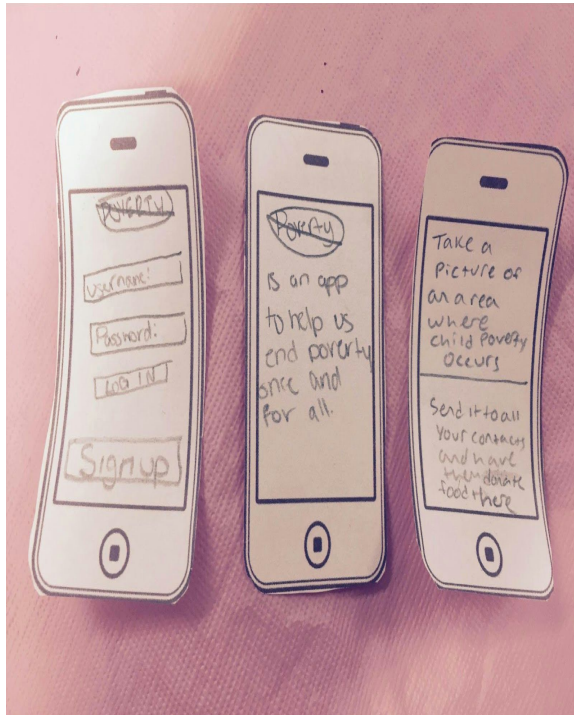 POVERTY
Username:
Password:
LOG IN
Sign up
Poverty
is an app
to help us
end poverty
once and
for all.
Take a
picture of
an area
where
child poverty
occurs
Send it to all
your contacts
and have
them donate
food there